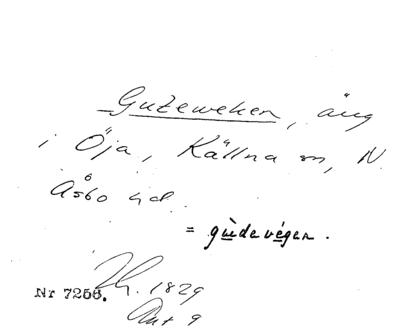 Guteweken, äng
i Öja, Källna sn, N.
Åsbo hd.
= gùdevégen.
Nr 7256. Lh. 1829
Akt 9